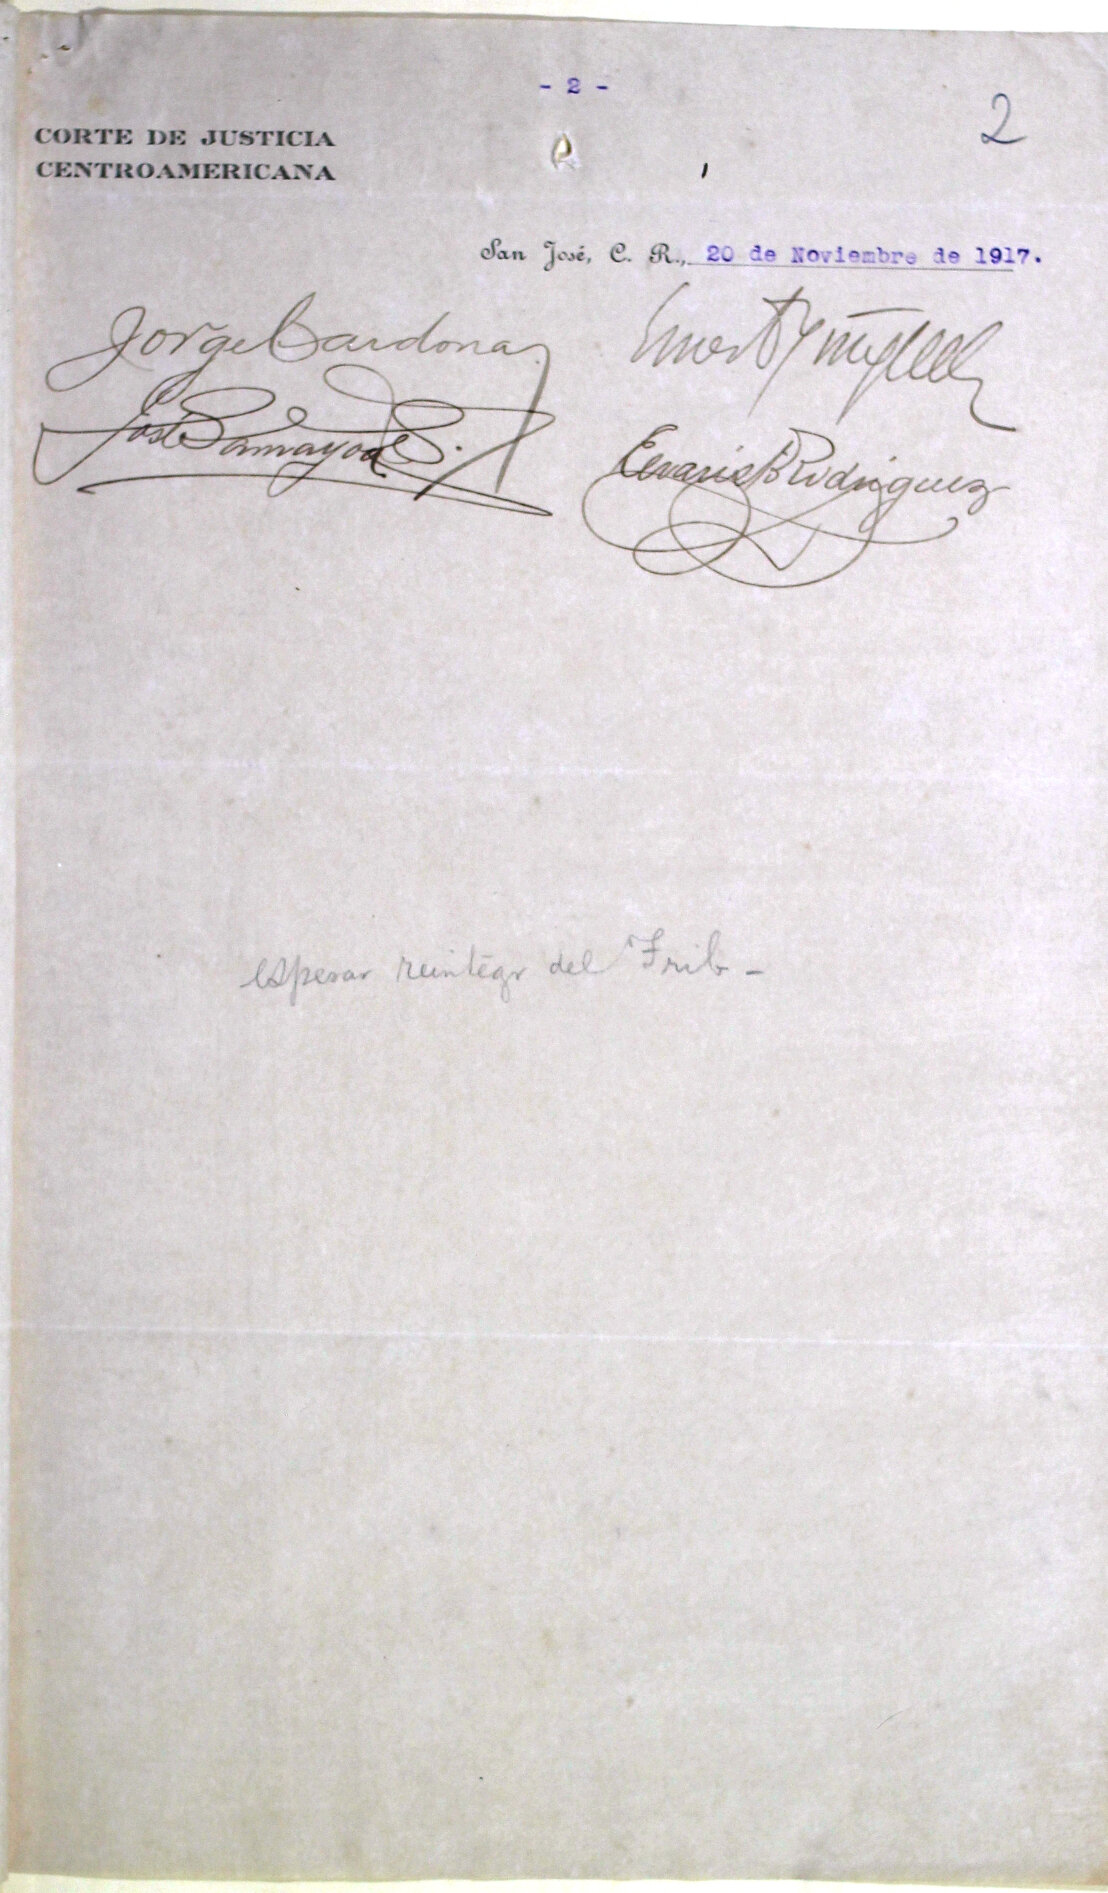 - 2 -
2
CORTE DE JUSTICIA
CENTROAMERICANA
San José, C. R., 20 de Noviembre de 1917.
Jorge Cardona
José
Rodríguez
esperar reintegr del Trib -